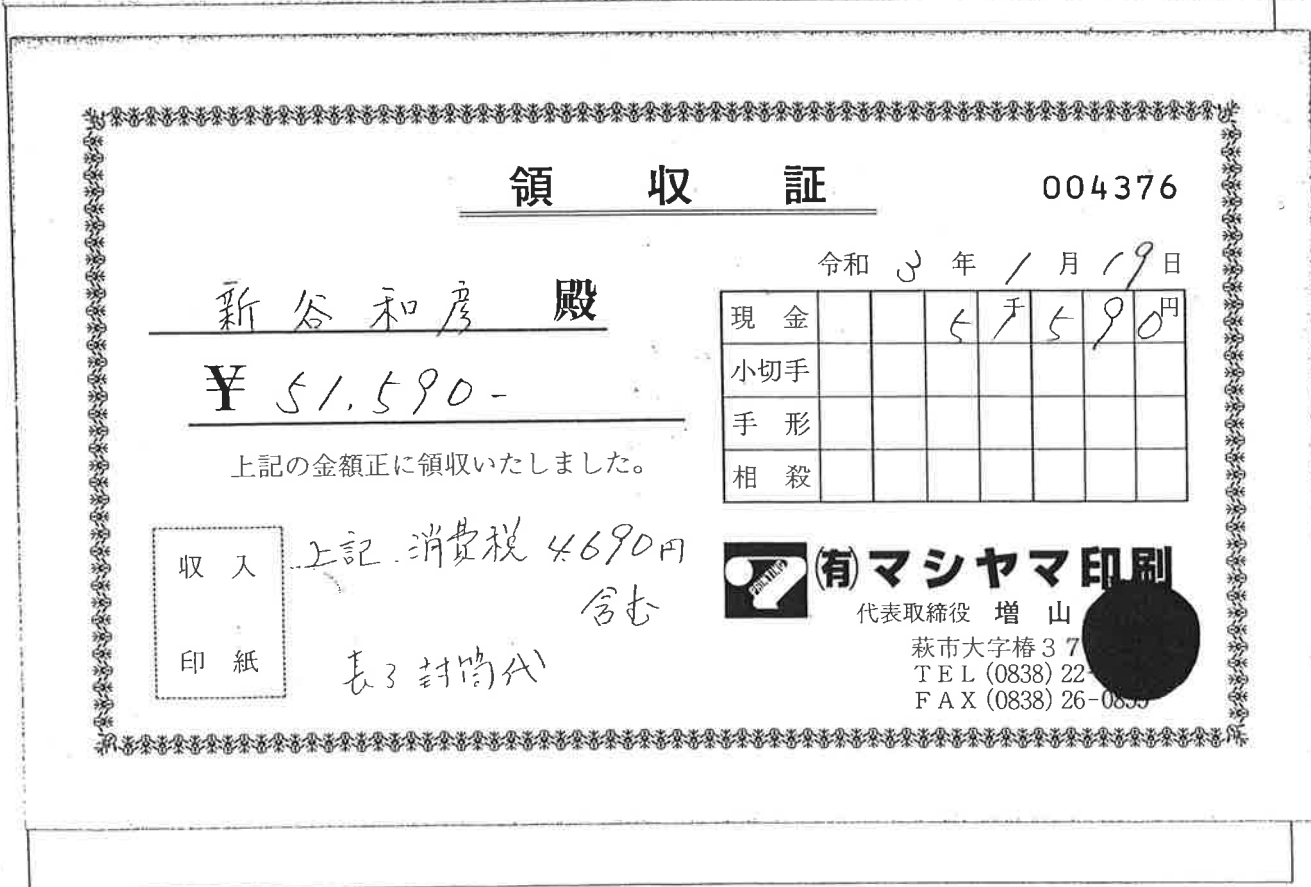 領収証 004376
令和 3 年 1 月 19 日
新谷和彦 殿
¥ 51,590-
上記の金額正に領収いたしました。
現金 51590円
小切手
手形
相殺
収入
印紙
上記 消費税 4,690円
含む
長3封筒代
(有)マシヤマ印刷
代表取締役 増山
萩市大字椿37
TEL (0838) 22-
FAX (0838) 26-